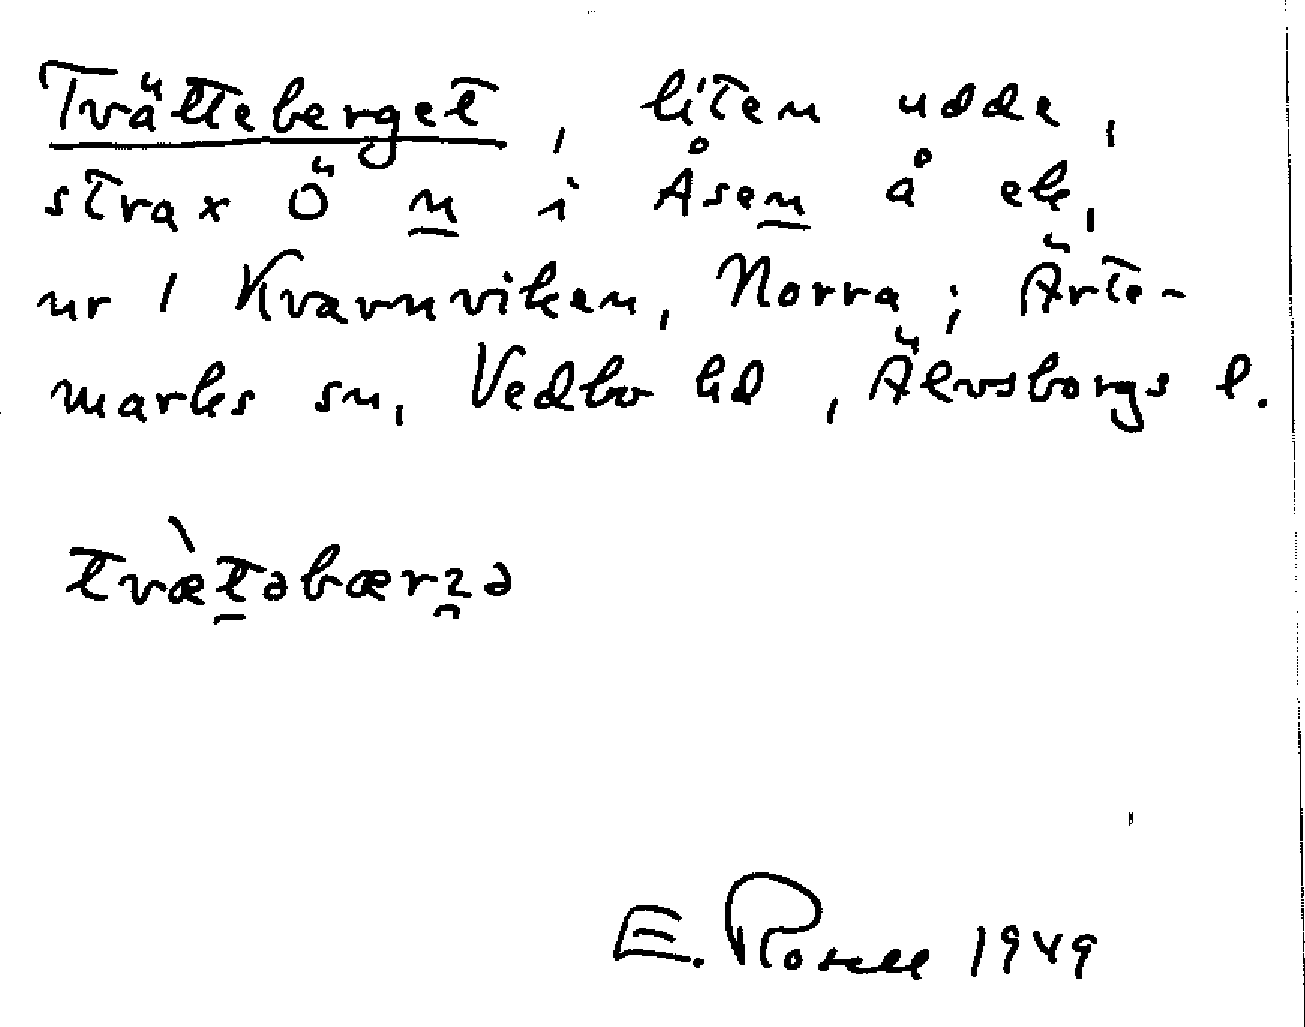 Tvätteberget, liten udde,
strax Ö n i Åsen å ek,
nr 1 Kvarnviken, Norra; Ärte-
marks sn, Vedbo hd, Älvsborgs l.
tvæ̀t̠əbærꝛ̯ə
E. Rosell 1949